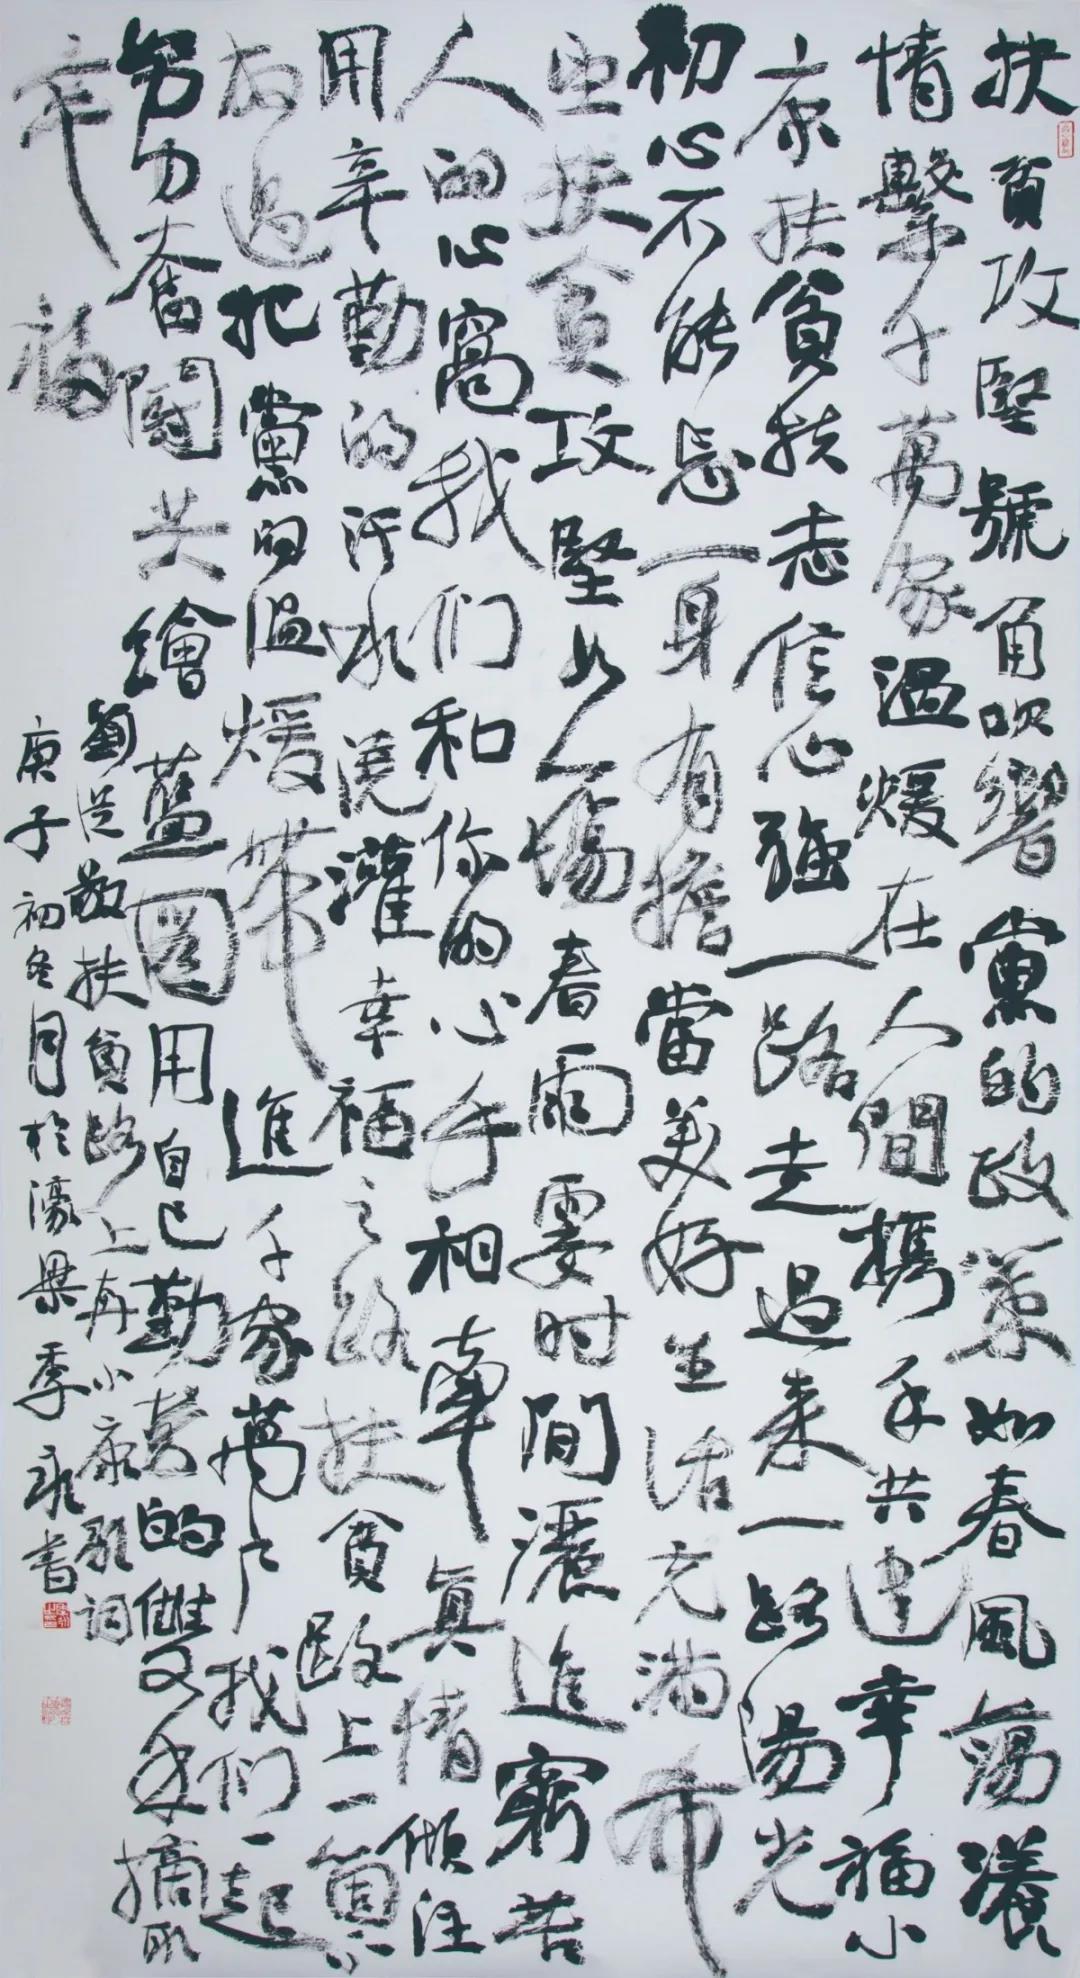 扶貧攻堅號角吹響黨的政策如春風蕩漾
情繫千萬家溫暖在人間攜手共建幸福小
康扶貧扶志信心強一路走過来一路陽光
初心不能忘一身有擔當美好生活充滿希
望扶貧攻堅如一場春雨霎时間灑進窮苦
人的心窩我们和你的心手相牽真情傾注
用辛勤的汗水澆灌幸福之路扶貧路上一個不
放過把黨的溫暖帶進千家萬户我们一起
努力奮鬪共繪藍圖用自己勤勞的雙手摘取
幸福
扶貧路上奔小康歌詞
庚子初冬月於濠梁季書